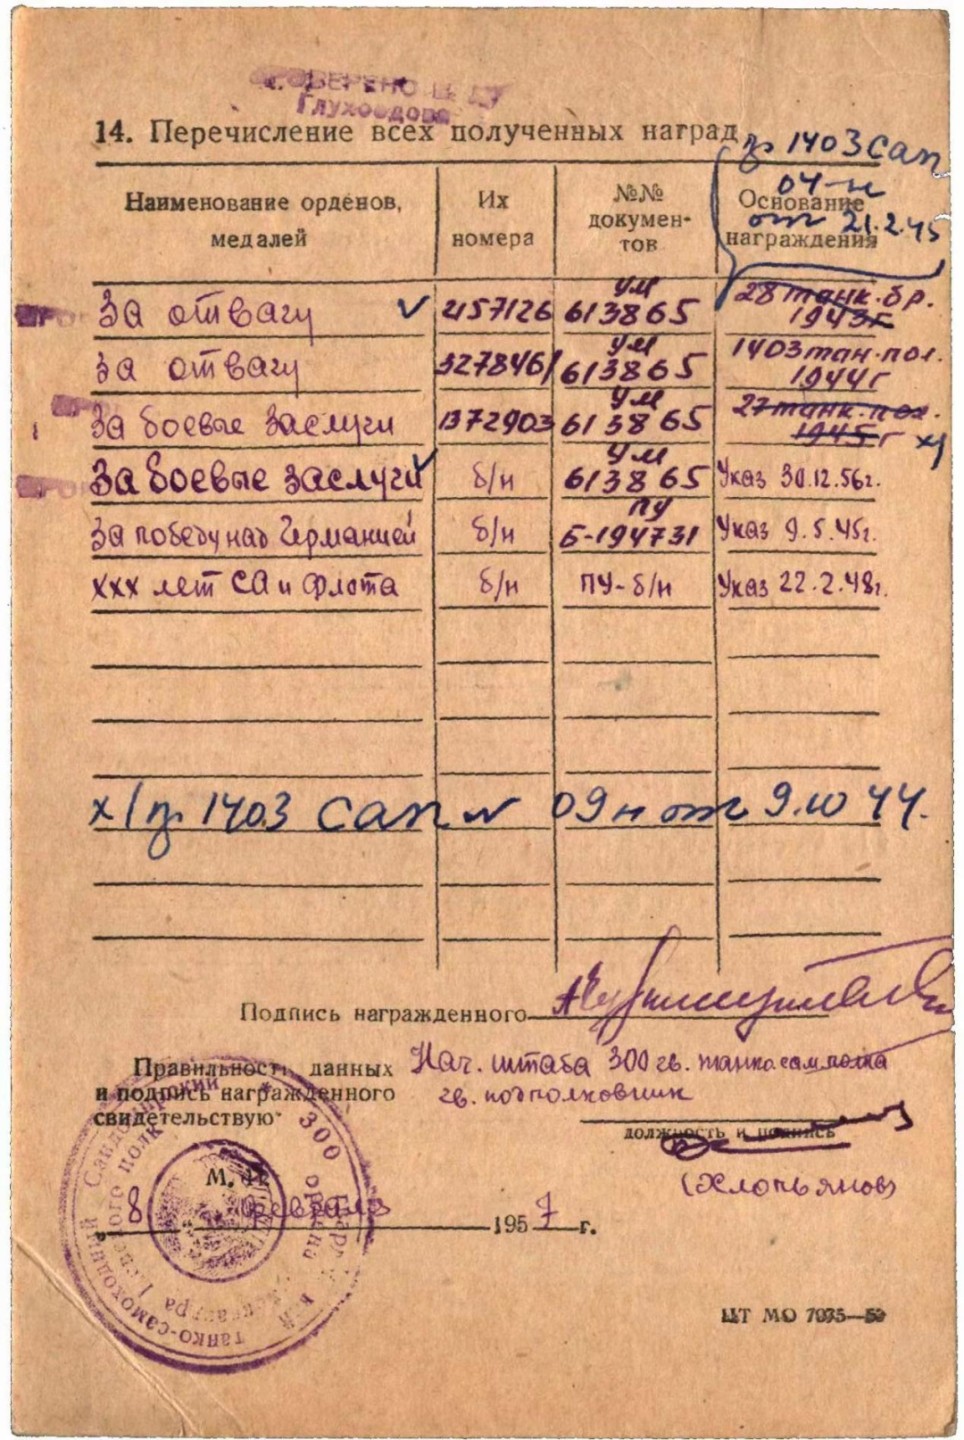 ПРОВЕРЕНО
Глухоедова
14. Перечисление всех полученных наград
пр. 1403 сап
04-н
от 21.2.45
Наименование орденов, медалей | Их номера | №№ документов | Основание награждения
За отвагу | 2157126 | УМ 613865 | 28 танк. бр. 1943г
За отвагу | 3278461 | УМ 613865 | 1403 тан. пол. 1944г
За боевые заслуги | 1372903 | УМ 613865 | 27 танк. пол. 1945г х/
За боевые заслуги | б/н | УМ 613865 | Указ 30.12.56г.
За победу над Германией | б/н | ПУ Б-194731 | Указ 9.5.45г.
ХХХ лет СА и Флота | б/н | ПУ-б/н | Указ 22.2.48г.
х/ пр. 1403 сап № 09н от 9.10 44.
Подпись награжденного
Правильность данных
и подпись награжденного
свидетельствую
Нач. штаба 300 гв. танкосам полка
гв. подполковник
должность и подпись
(Хлопьянов)
М.
8 февраля 1957 г.
танко-самоходный Сандомирский
300
ЦТ МО 7035—50